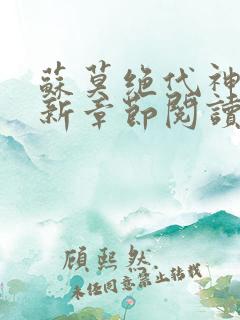 蘇莫絕代神
新章節閱讀
顧熙然
未經同意禁止轉載